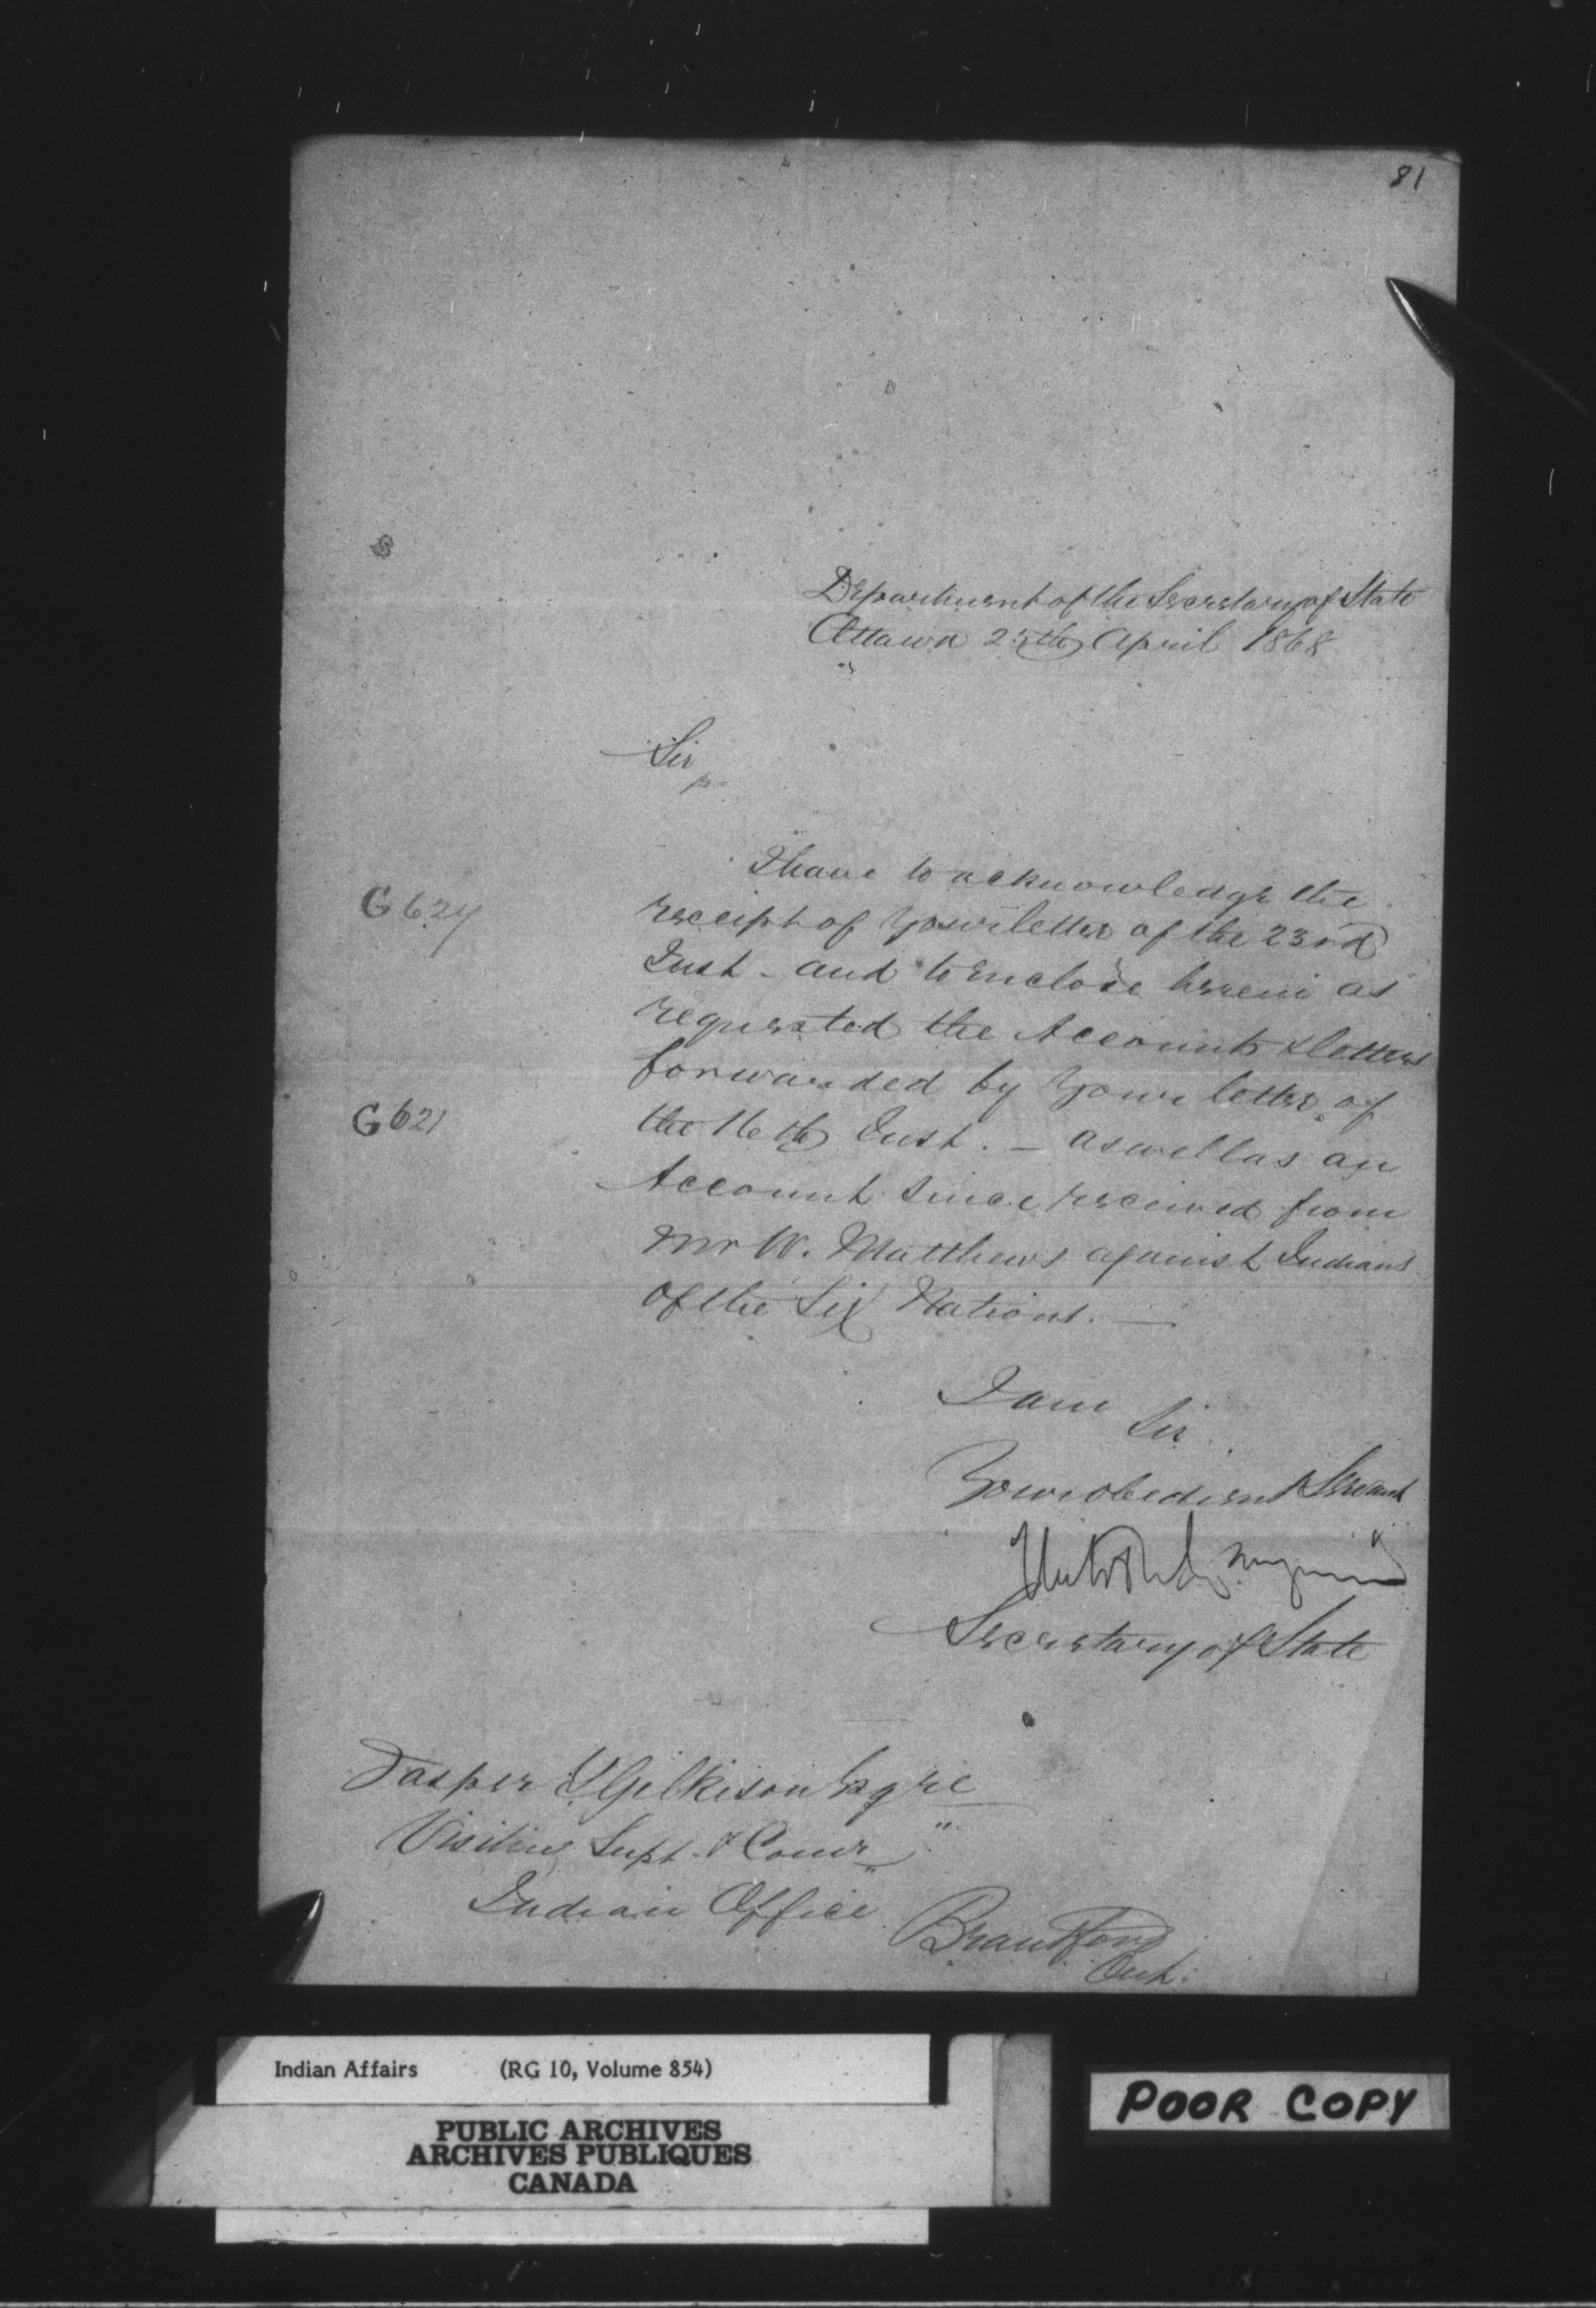 81
Department of the Secretary of State
Ottawa 25th April 1868
Sir
I have to acknowledge the
G 624
receipt of Your letter of the 23rd
Inst - and to enclose herein as
requested the Accounts & letters
forwarded by Your letter of
G 621
the 16th Inst. - as well as an
Account since received from
Mr W. Matthews against Indians
of the Six Nations. -
I am
Sir
Your obedient Servant
Secretary of State
Jasper T Gilkison Esqre
Visiting Supt. & Comr
Indian Office
Brantford
Ont.
Indian Affairs (RG 10, Volume 854)
PUBLIC ARCHIVES
ARCHIVES PUBLIQUES
CANADA
POOR COPY